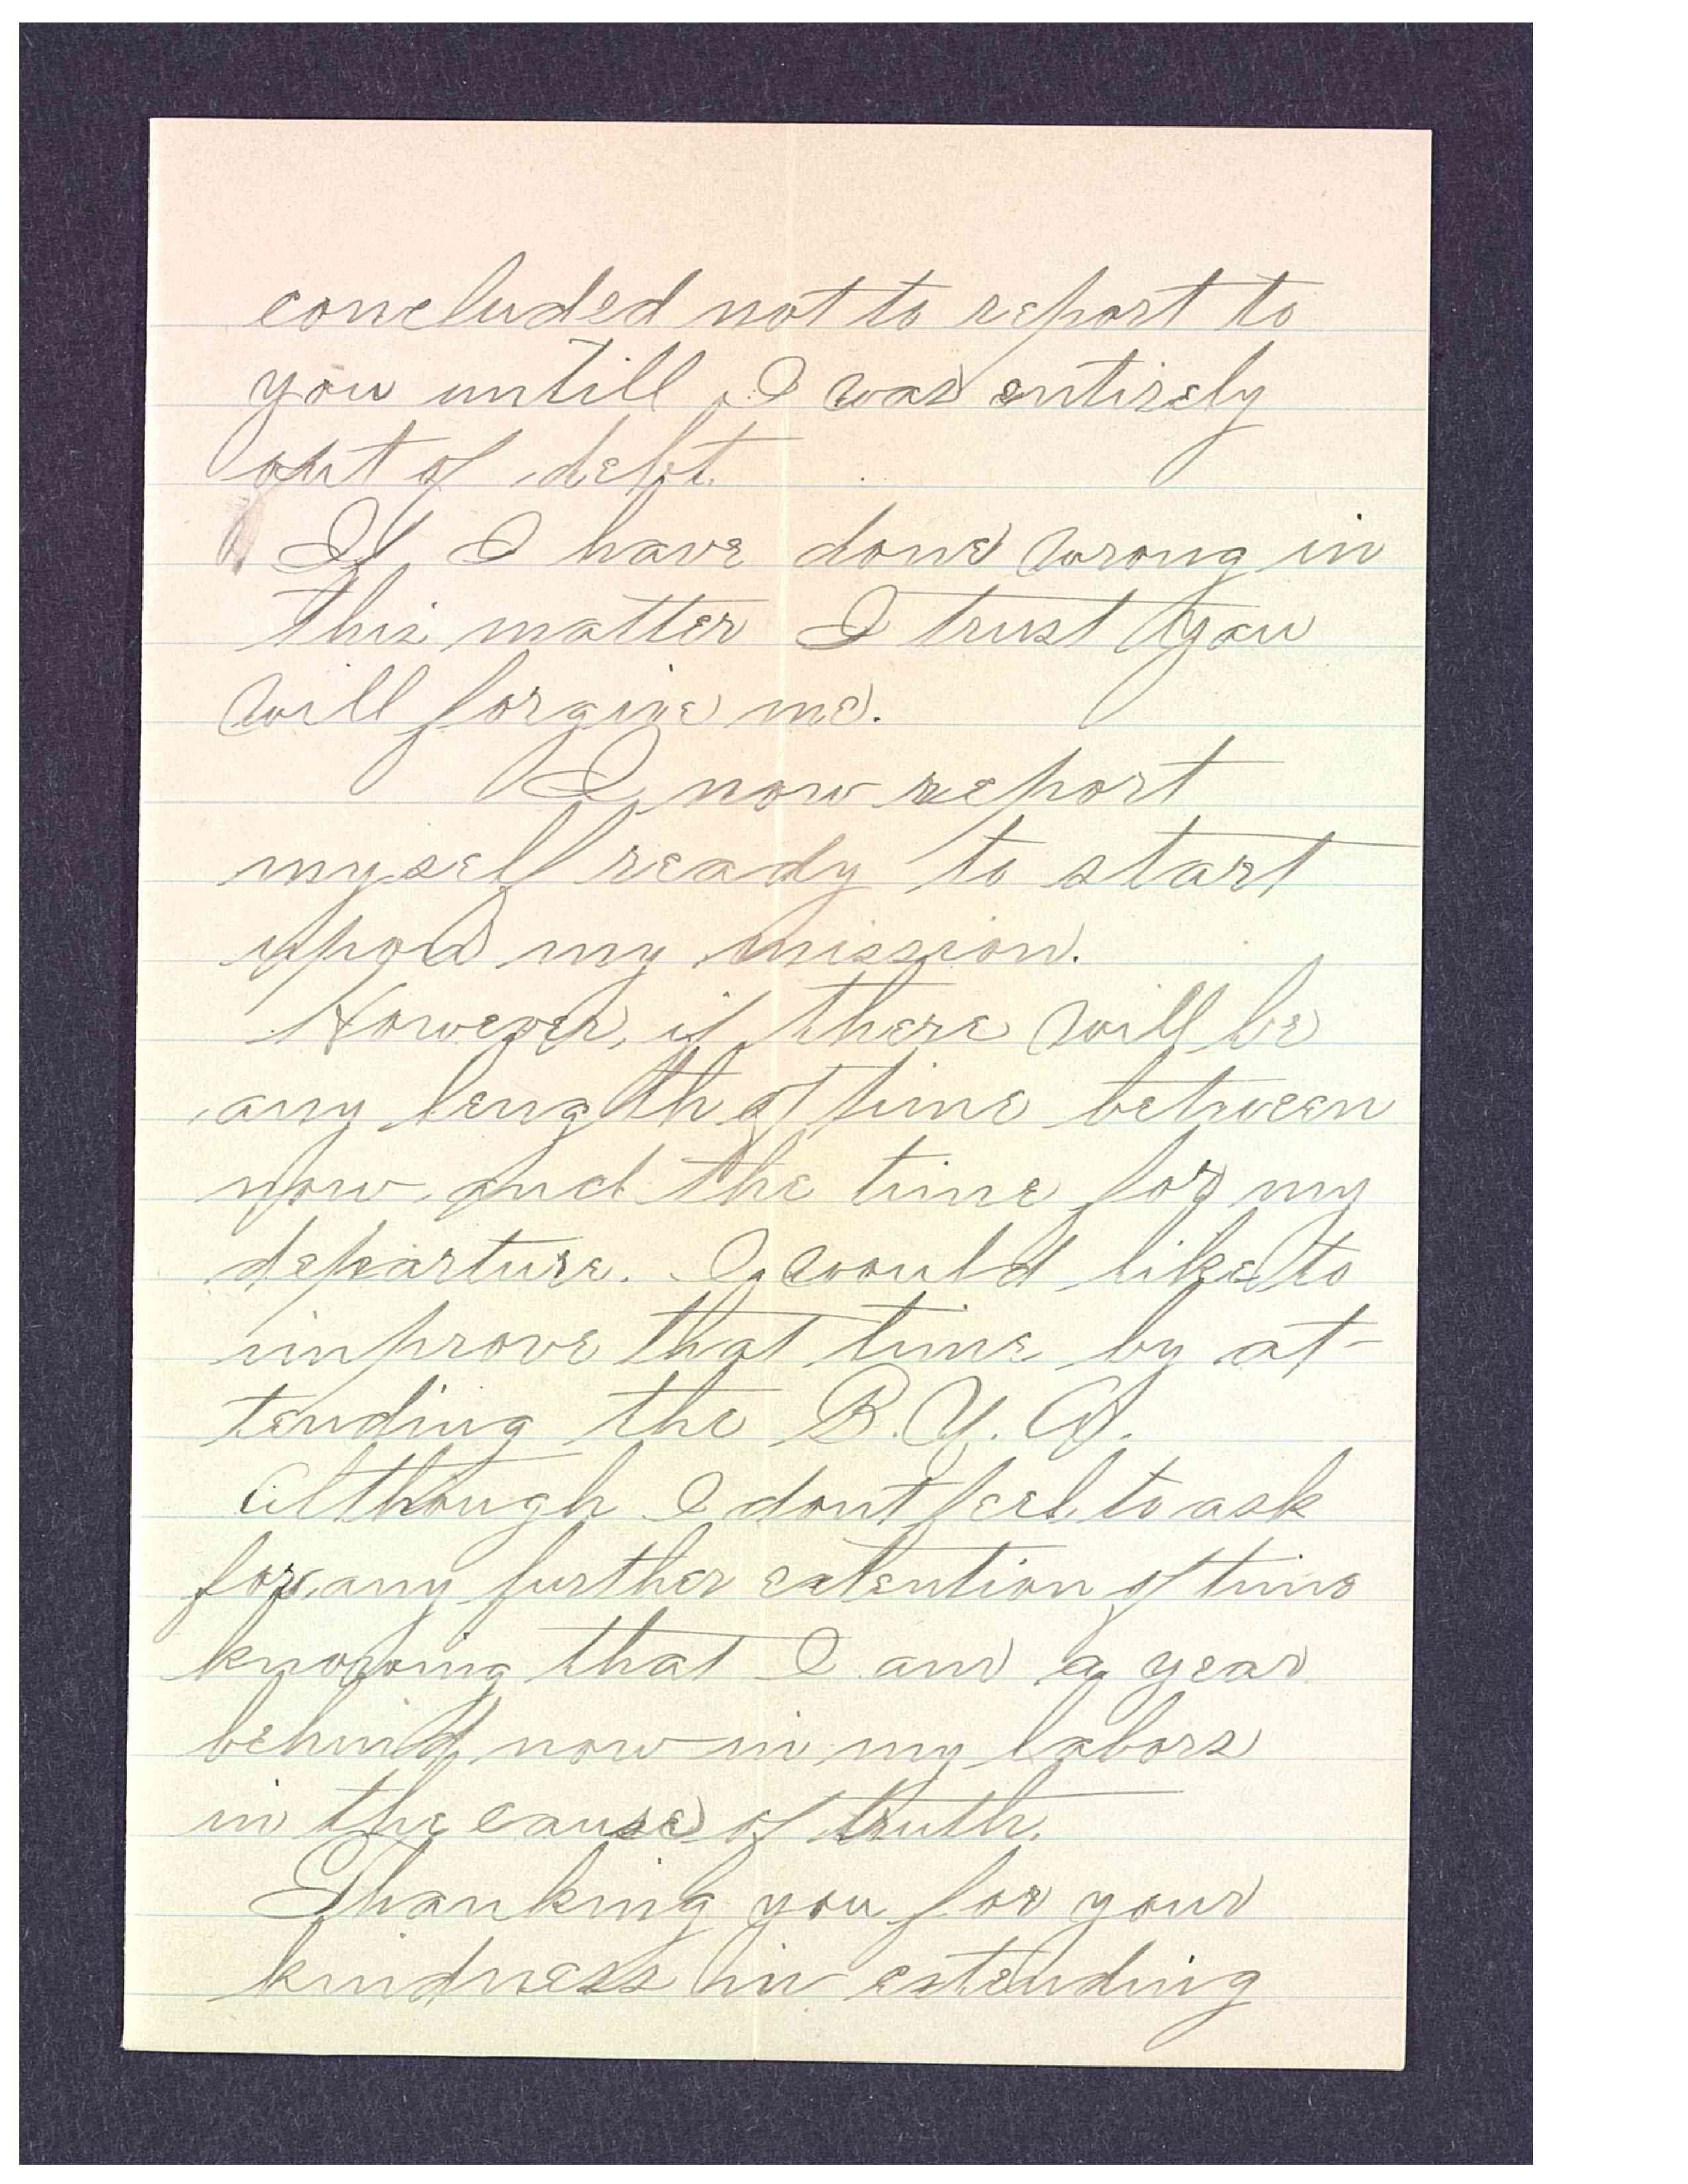 concluded not to report to
you untill I was entirely
out of debt.
If I have done wrong in
this matter I trust you
will forgive me.
I now report
myself ready to start
upon my mission.
However, if there will be
any length of time between
now and the time for my
departure. I would like to
improve that time by at-
tending the B.Y.A.
Although I dont feel to ask
for any further extention of time
knowing that I am a year
behind now in my labors
in the cause of truth.
Thanking you for your
kindness in extending